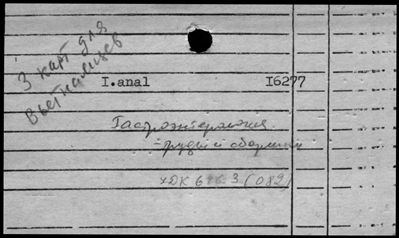 3 карт для
вьетнамцев
I.anal I6277
Гастроэнтерология
- труды и сборники
УДК 616.3 (082)